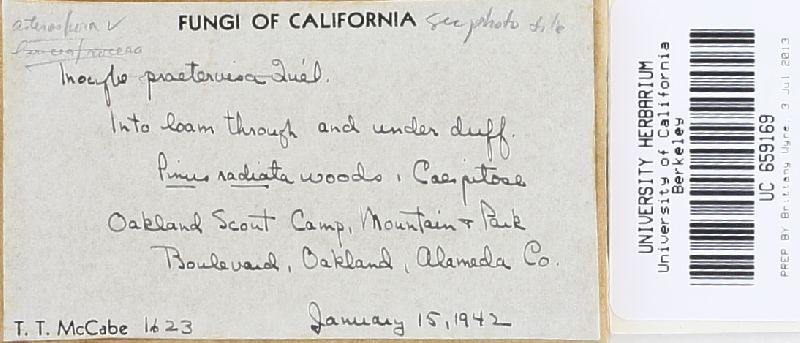 asterospora ✓
FUNGI OF CALIFORNIA see photo file
Inocybe praetervisa Quél.
Into loam through and under duff.
Pinus radiata woods. Caespitose
Oakland Scout Camp, Mountain & Park
Boulevard, Oakland, Alameda Co.
January 15, 1942
T. T. McCabe 1623
UNIVERSITY HERBARIUM
University of California
Berkeley
UC 659169
PREP BY Brittany Wyre 3 Jul 2013